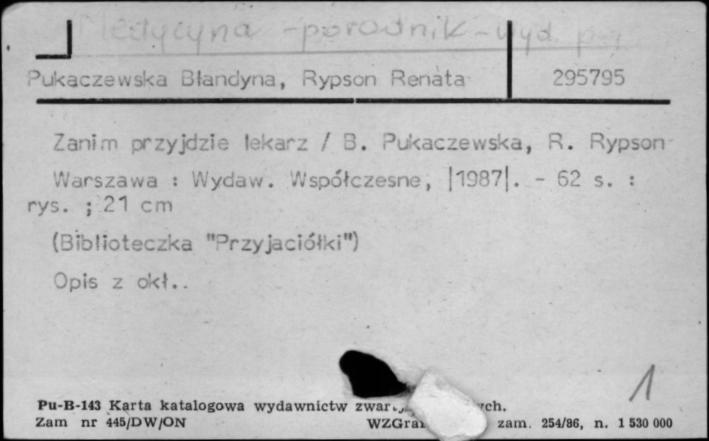 Medycyna - poradnik - wyd. pop.
Pukaczewska Blandyna, Rypson Renata 295795
Zanim przyjdzie lekarz / B. Pukaczewska, R. Rypson
Warszawa : Wydaw. Współczesne, |1987|. - 62 s. :
rys. ; 21 cm
(Biblioteczka "Przyjaciółki")
Opis z okł..
1
Pu-B-143 Karta katalogowa wydawnictw
Zam nr 445/DW/ON zam. 254/86, n. 1 530 000